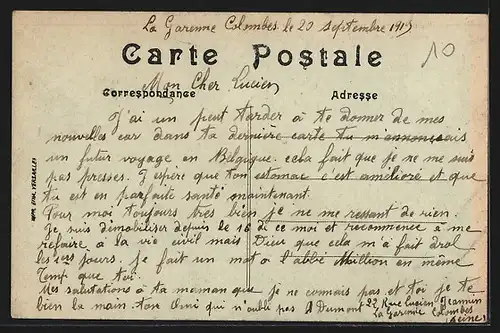 La Garenne Colombes le 20 Septembre 1919
Carte Postale
10
Mon Cher Lucien
Correspondance Adresse
J'ai un peut tarder a te donner de mes
nouvelles car dans ta dernière carte tu m'annonçais
un futur voyage en Belgique. cela fait que je ne me suis
pas presses. J'espere que ton estomac c'est amélioré et que
tu est en parfaite santé maintenant.
Pour moi toujours très bien je ne me ressent de rien.
Je suis Démobiliser depuis le 16 de ce moi et recommence a me
refaire a la vie civil mais Dieu que cela m'a fait drol
les 1ers jours. je fait un mot a l'abbé Million en même
Temp que toi.
Mes salutations a ta maman que je ne connais pas et toi je te
serre bien la main. ton Ami qui n'oubli pas A Dumont 22 Rue Lucien Jeannin
La Garenne Colombes
(Seine)
IMP. EDIA. VERSAILLES